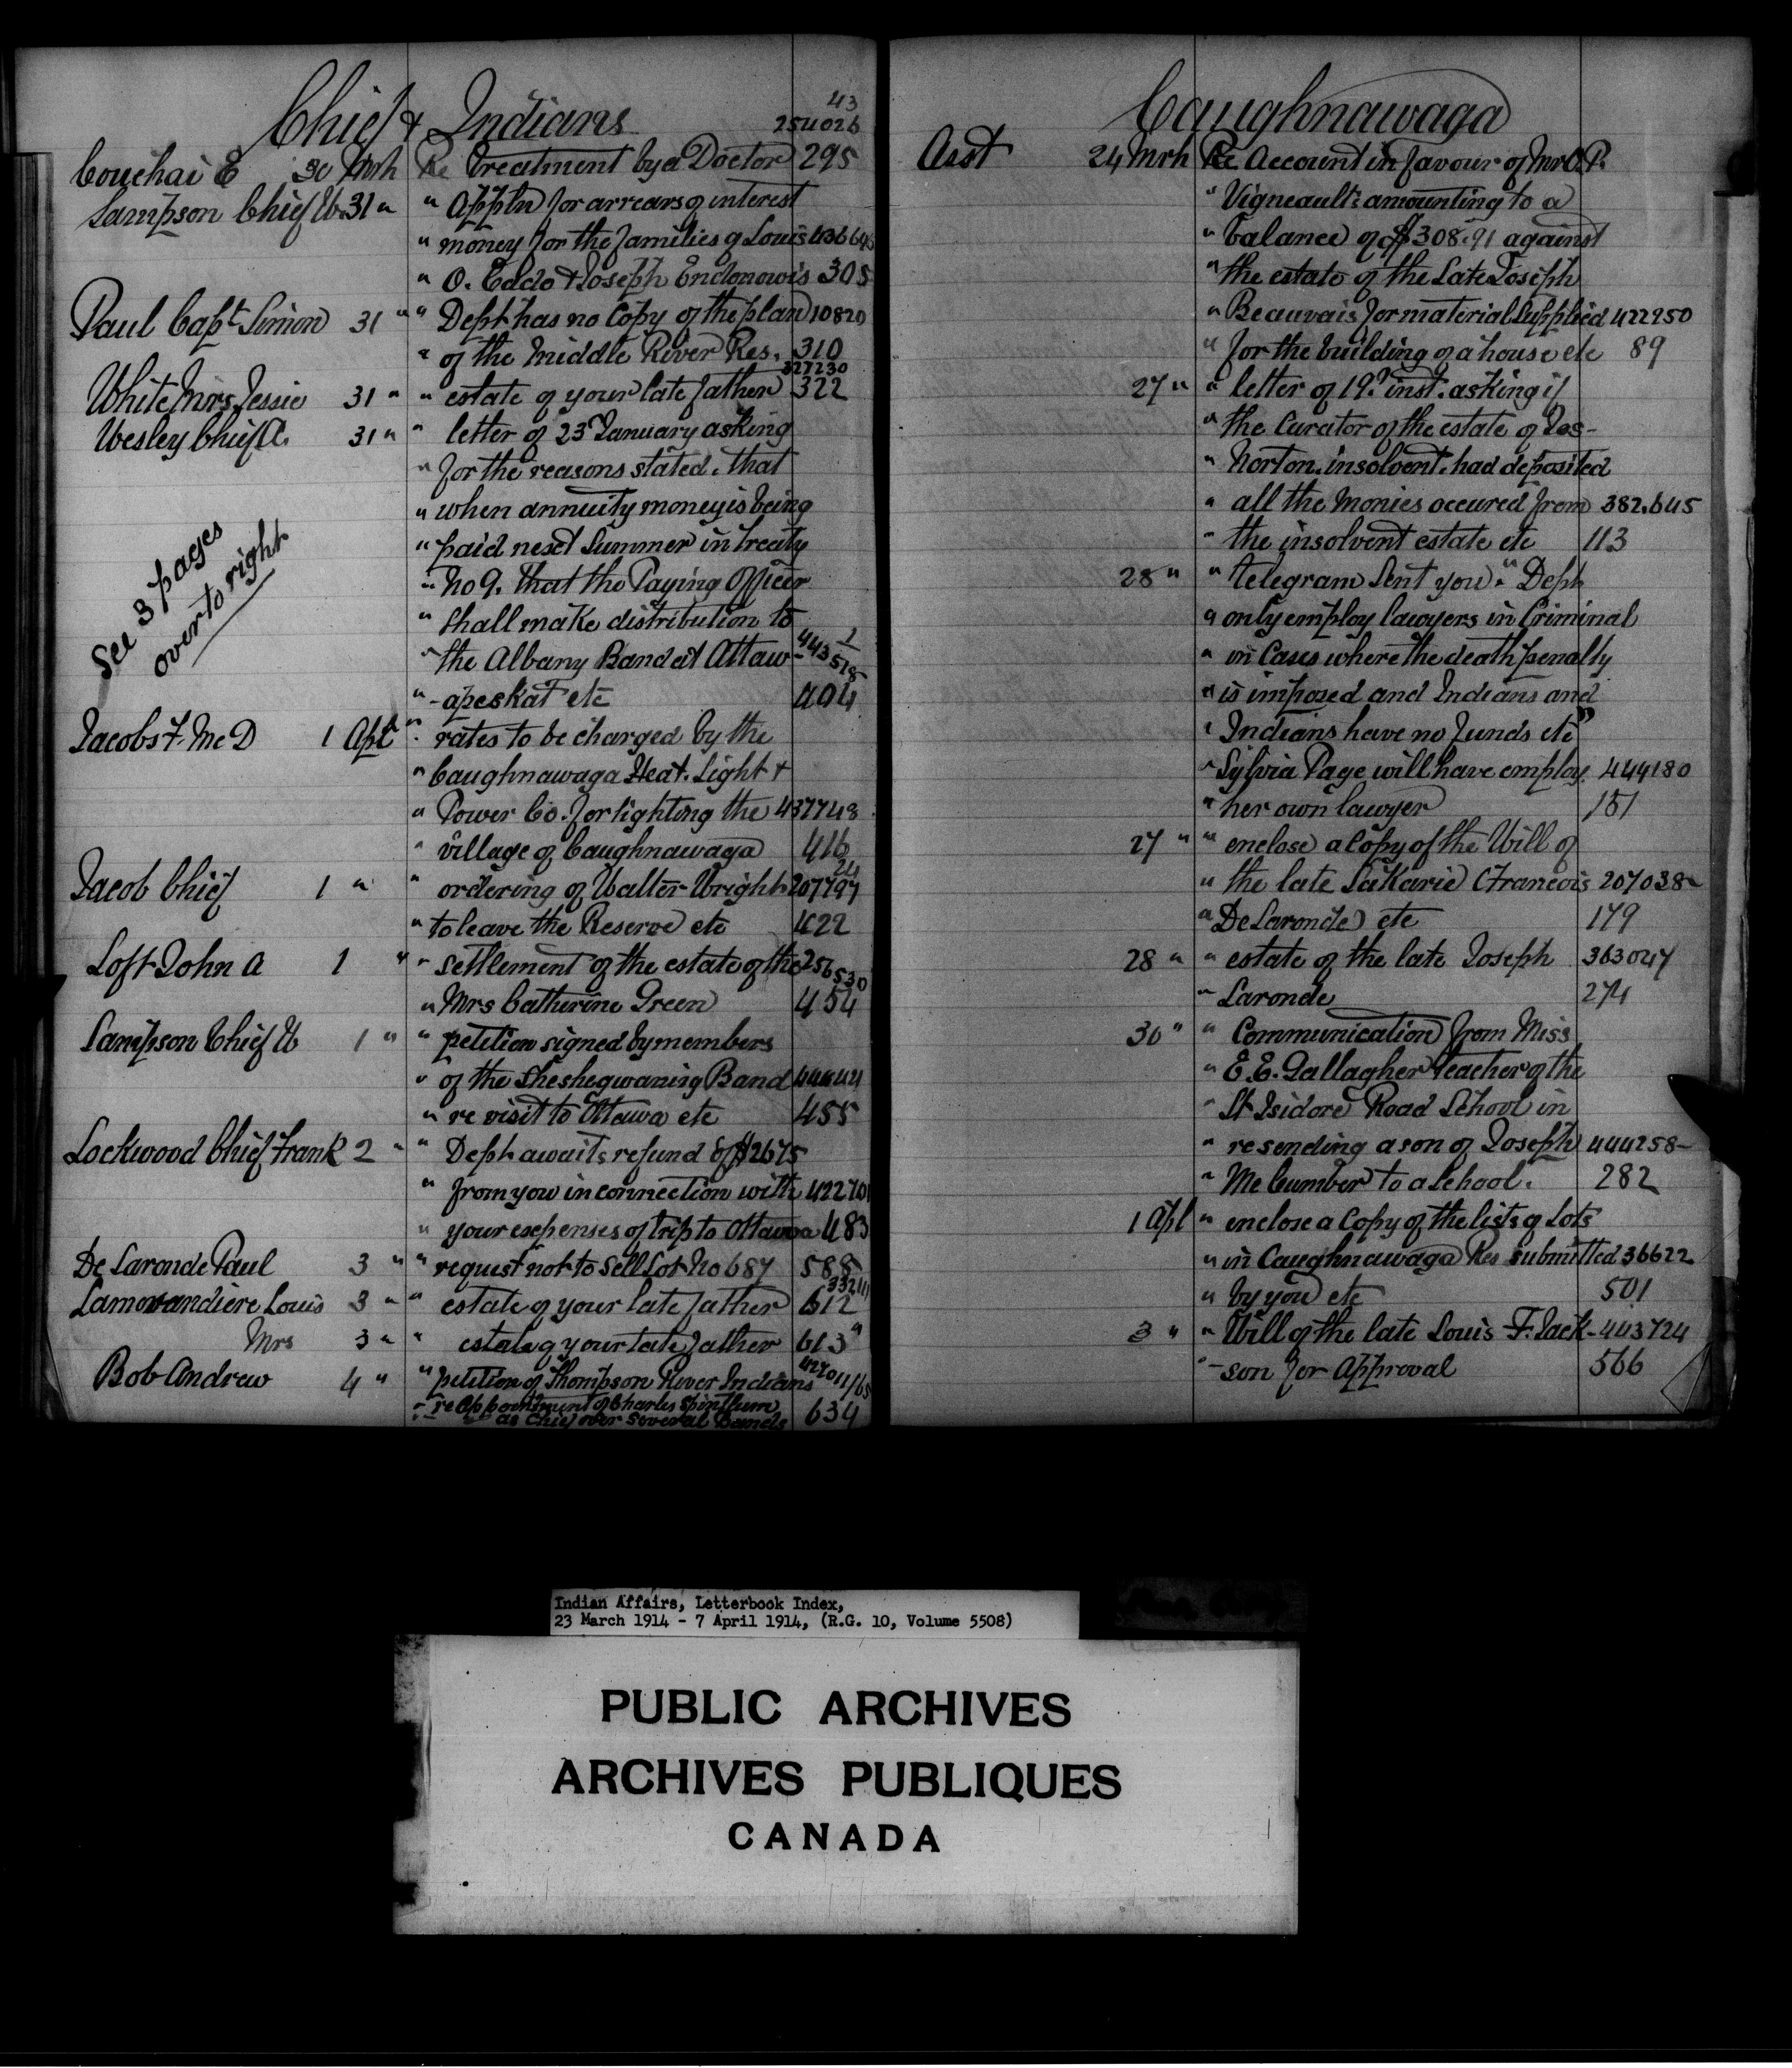 Chief & Indians
43
254026
Couchai E 30 Mrh Re Treatment by a Doctor 295
Sampson Chief W 31 " " Appln for arrears of interest
" money for the families of Louis 436646
" O. Eddo & Joseph Endonowis 305
Paul Capt Simon 31 " " Dept has no Copy of the plan 10820
" of the Middle River Res. 310
327230
White Mrs Jessie 31 " " estate of your late father 322
Wesley Chief A. 31 " " letter of 23 January asking
" for the reasons stated. that
" when annuity money is being
" paid next Summer in treaty
" No 9. that the Paying Officer
" shall make distribution to
" the Albany Band at Attaw- 443518-2
" -apeskat etc 404
See 3 pages
over to right
Jacobs F. McD 1 Apl " rates to be charged by the
" Caughnawaga Heat. Light +
" Power Co. for lighting the 437748
" village of Caughnawaga 416
24
Jacob Chief 1 " " ordering of Walter Wright 207797
" to leave the Reserve etc 422
Loft John A 1 " " settlement of the estate of the 256530
" Mrs Catherine Green 454
Sampson Chief W 1 " " petition signed by members
" of the Sheshegwaning Band 444441
" re visit to Ottawa etc 455
Lockwood Chief Frank 2 " " Dept awaits refund of $2675
" from you in connection with 422701
" your expenses of trip to Ottawa 483
De Laronde Paul 3 " " request not to sell Lot No 687 588
33211
Lamorandiere Louis 3 " " estate of your late father 612
Mrs 3 " " estate of your late father 613 "
Bob Andrew 4 " " petition of Thompson River Indians 427011/65
" re Appointment of Charles Spintlum
" as Chief over several Bands 634
Caughnawaga
Asst 24 Mrh Re Account in favour of Mr O.P.
" Vigneault amounting to a
" balance of $308.91 against
" the estate of the Late Joseph
" Beauvais for material Supplied 422250
" for the building of a house etc 89
27 " " letter of 19th inst. asking if
" the Curator of the estate of Jos-
" Norton. insolvent. had deposited
" all the Monies occured from 382,645
" the insolvent estate etc 113
28 " " telegram Sent you. " Dept
" only employ lawyers in Criminal
" in Cases where the death penalty
" is imposed and Indians and
" Indians have no funds etc"
" Sylvia Page will have employ 444180
" her own lawyer 181
27 " " enclose a Copy of the Will of
" the late Sakarie (Francois 207038-
" De Laronde) etc 179
28 " " estate of the late Joseph 363047
" Laronde 274
30 " " Communication from Miss
" E.E. Gallagher teacher of the
" St Isidore Road School in
" re sending a son of Joseph 444258-
" McCumber to a School. 282
1 Apl " enclose a Copy of the lists of Lots
" in Caughnawaga Res submitted 36622
" by you etc 501
3 " " Will of the late Louis F. Jack- 443724
" -son for Approval 566
Indian Affairs, Letterbook Index,
23 March 1914 - 7 April 1914, (R.G. 10, Volume 5508)
PUBLIC ARCHIVES
ARCHIVES PUBLIQUES
CANADA